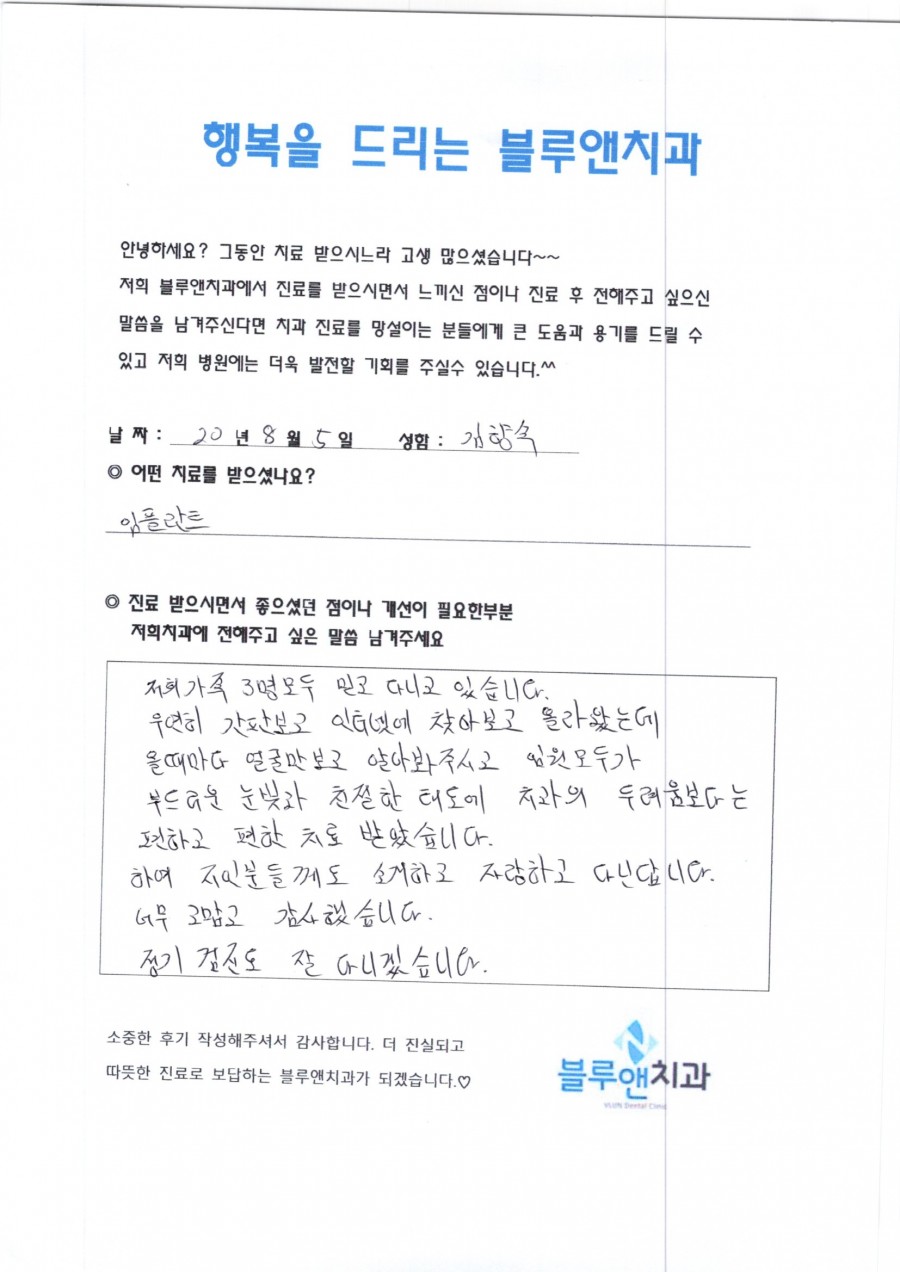 행복을 드리는 블루앤치과
안녕하세요? 그동안 치료 받으시느라 고생 많으셨습니다~~
저희 블루앤치과에서 진료를 받으시면서 느끼신 점이나 진료 후 전해주고 싶으신
말씀을 남겨주신다면 치과 진료를 망설이는 분들에게 큰 도움과 용기를 드릴 수
있고 저희 병원에는 더욱 발전할 기회를 주실수 있습니다.^^
날 짜 : 20 년 8 월 5 일 성함 : 김향숙
◎ 어떤 치료를 받으셨나요?
임플란트
◎ 진료 받으시면서 좋으셨던 점이나 개선이 필요한부분
저희치과에 전해주고 싶은 말씀 남겨주세요
저희가족 3명모두 믿고 다니고 있습니다.
우연히 간판보고 인터넷에 찾아보고 올라왔는데
올때마다 얼굴만보고 알아봐주시고 임원모두가
부드러운 눈빛과 친절한 태도에 치과의 두려움보다는
편하고 편한 치료 받았습니다.
하여 지인분들께도 소개하고 자랑하고 다닌답니다.
너무 고맙고 감사했습니다.
정기 검진도 잘 다니겠습니다.
소중한 후기 작성해주셔서 감사합니다. 더 진실되고
따뜻한 진료로 보답하는 블루앤치과가 되겠습니다.♡
블루앤치과